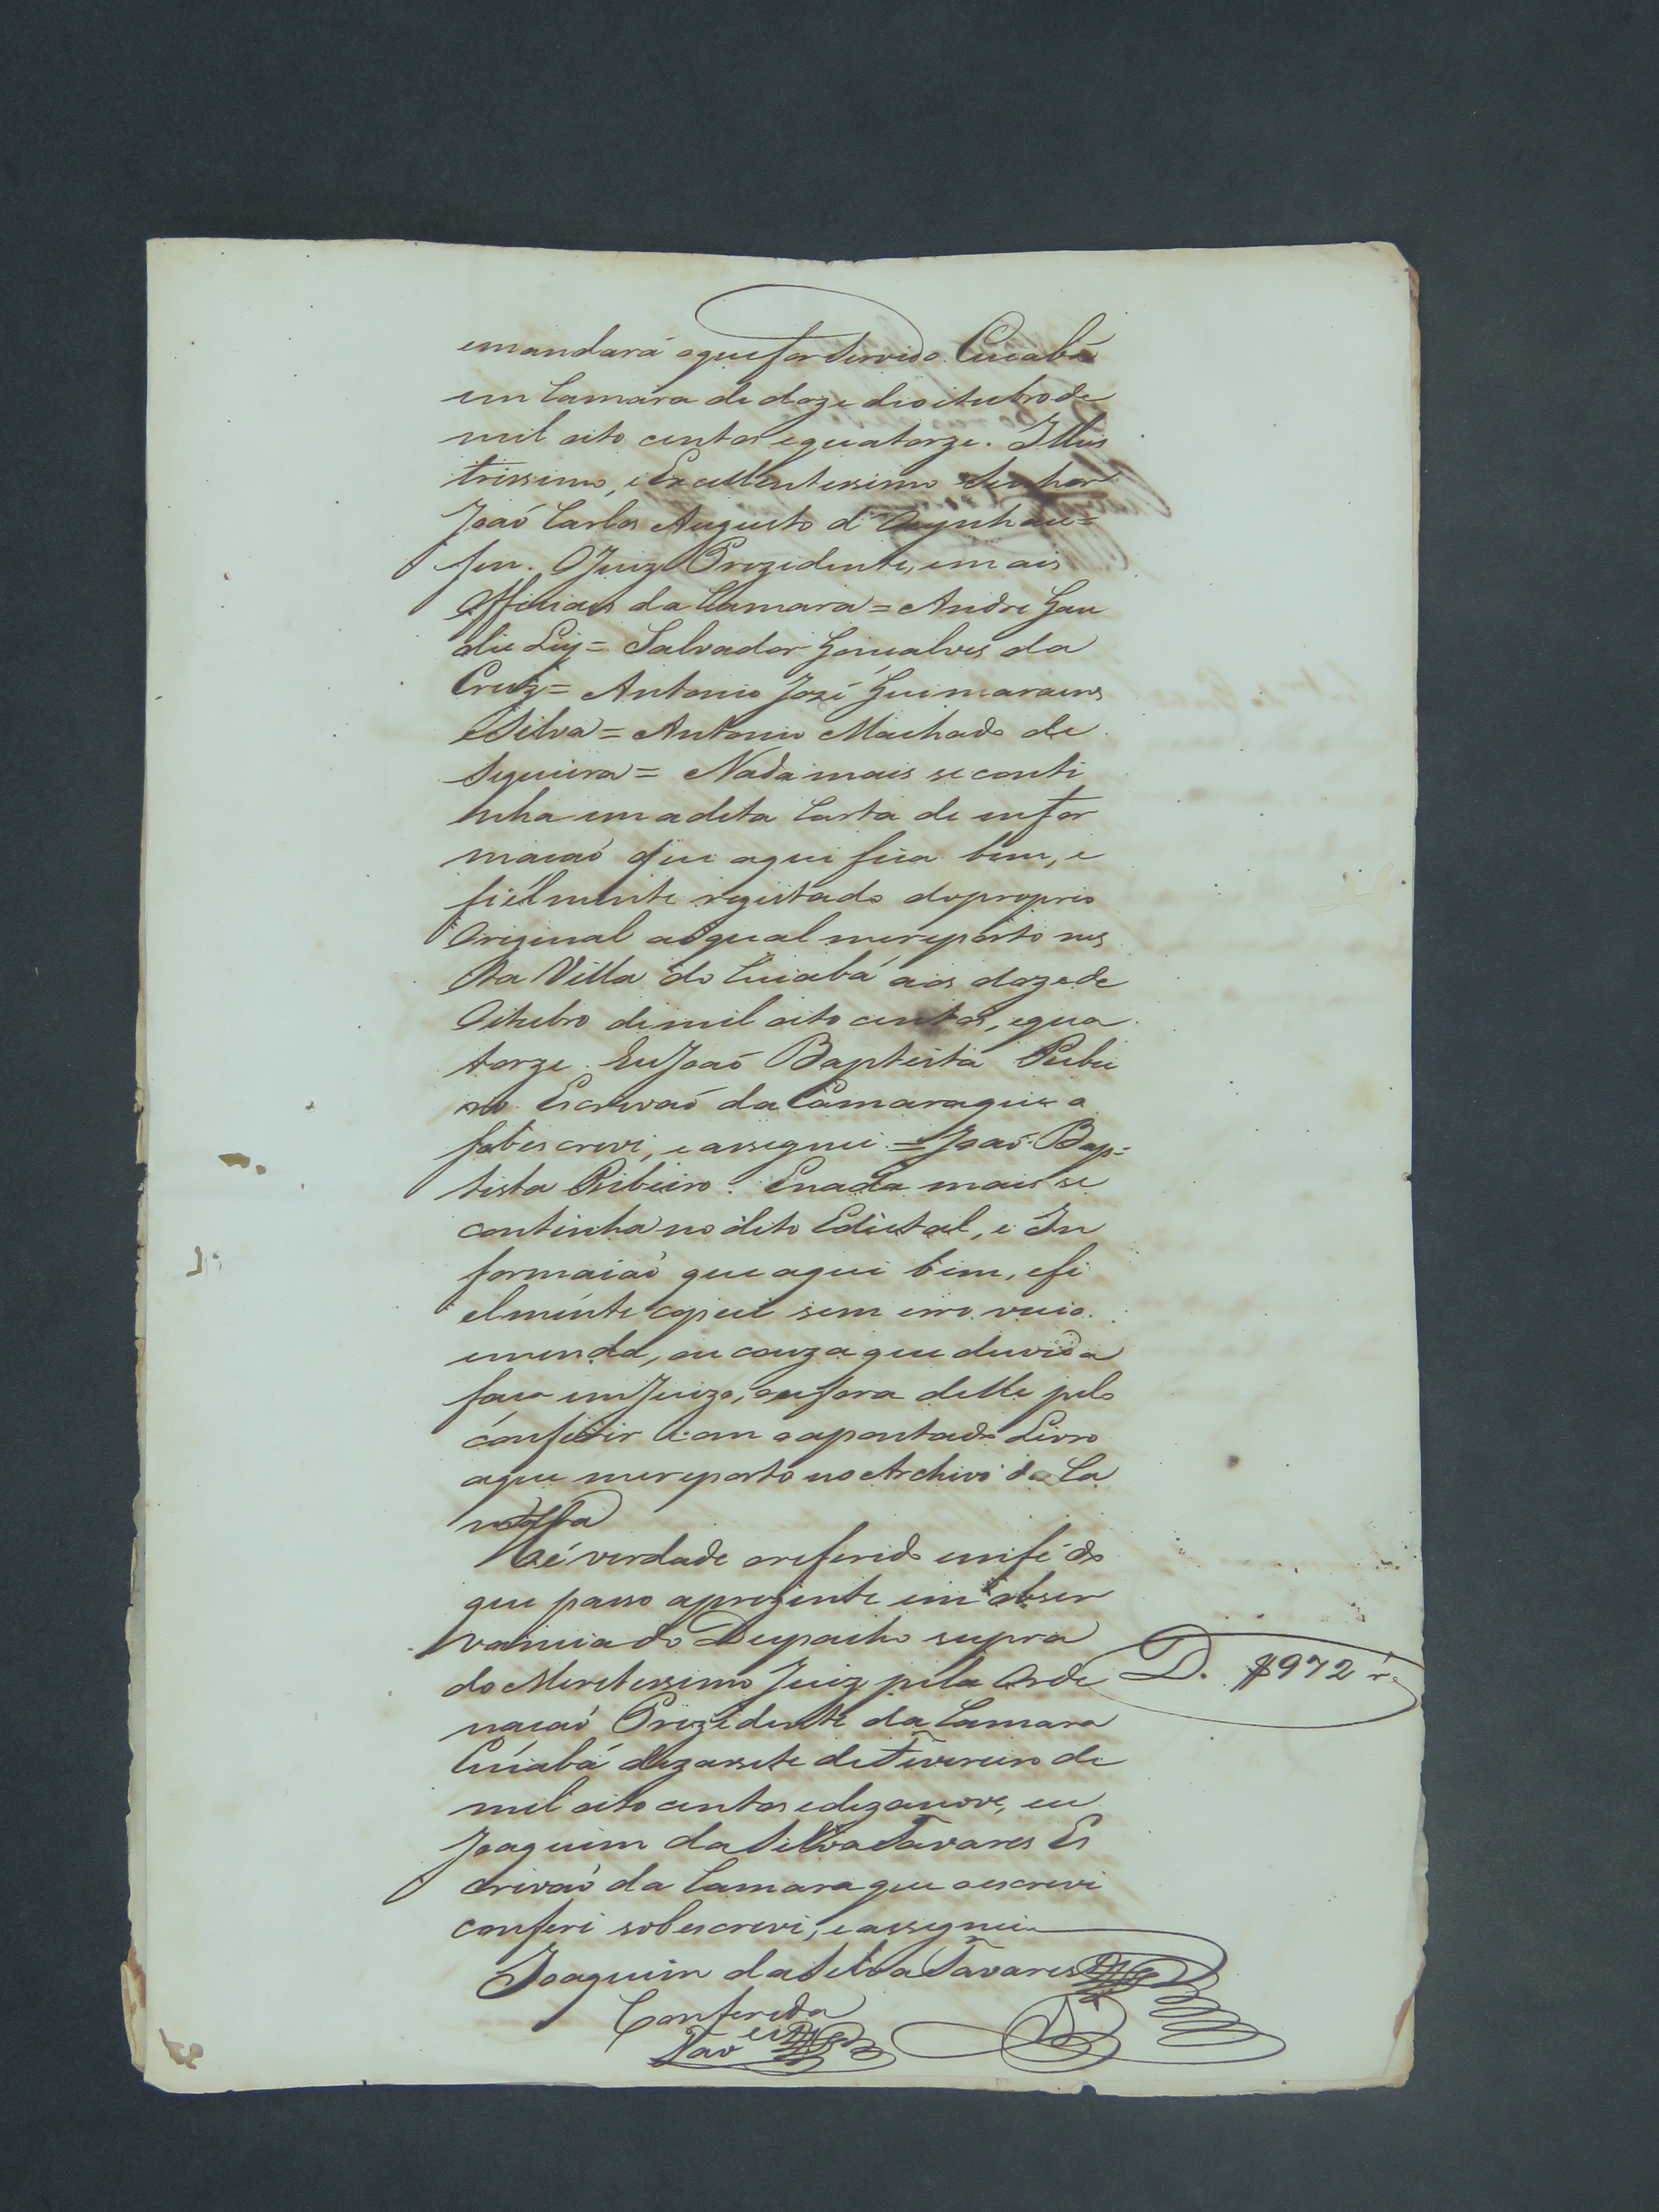 emandará oque for servido. Cuiabá
em Camara de doze de oitubro de
mil oito centos equatorze. Illus
trissimo, e Excellentissimo Senhor
Joaó Carlos Augusto d'Oeynhau=
sen. O Juiz Prezidente, emais
Officiais da Camara = Andre Gau
die Ley = Salvador Gonçalves da
Cruz = Antonio José Guimaraens
eSilva = Antonio Machado de
Siqueira = Nada mais se conti
nha em adita Carta de enfor
macaó que aqui fica bem, e
fiélmente registado doproprio
Original aoqual mereporto nes
ta Villa do Cuiabá aos dozede
Oitubro demil oito centos, equa
torze. Eu Joaó Baptista Ribei
ro Escrivaó da Camaraque o
sobescrevi, e assignei = Joaó Bap=
tista Ribeiro. Enada mais se
continha no dito Edictal, e In
formaçaó que aqui bem, efi
elmente copiei sem erro vicio
emenda, ou couza que duvida
faça emJuizo, oufora delle pelo
conferir com oapontado Livro
aque mereporto no Archivo da Ca
mara
Hé verdade oreferido emfé do
que passo aprezente em obser
vancia do Despacho supra
do Meretissimo Juiz pela Orde
nacaó Prezidente da Camara
Cuiabá dezasete deFevereiro de
mil oito centos edezanove, eu
Joaquim daSilvaTavares Es
crivaó da Camara que oescrevi
conferi sobescrevi, e assignei
D. $972 rs
Joaquim daSilvaTavares
Conferida
Tav